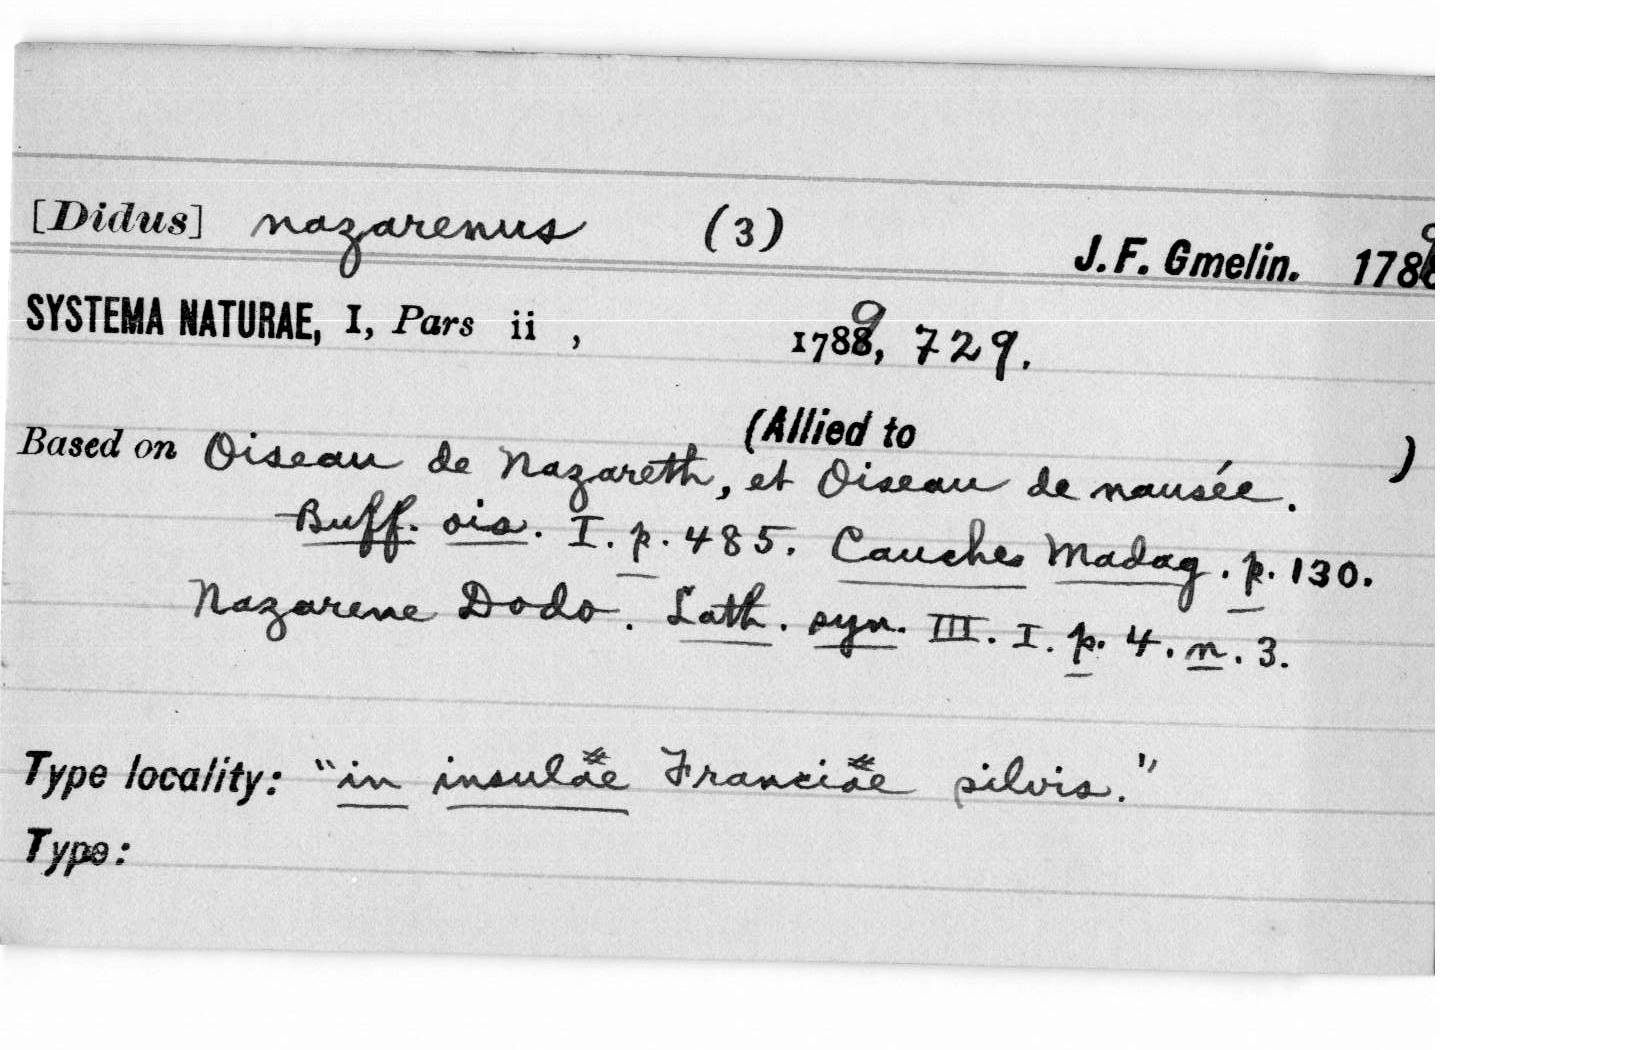 [Didus] nazarenus (3) J. F. Gmelin. 1789
SYSTEMA NATURAE, I, Pars ii , 1789, 729.
(Allied to )
Based on Oiseau de Nazareth, et Oiseau de nausée.
Buff. ois. I. p. 485. Cauches Madag. p. 130.
Nazarene Dodo. Lath. syn. III. I. p. 4. n. 3.
Type locality: "in insulae Franciae silvis."
Type: